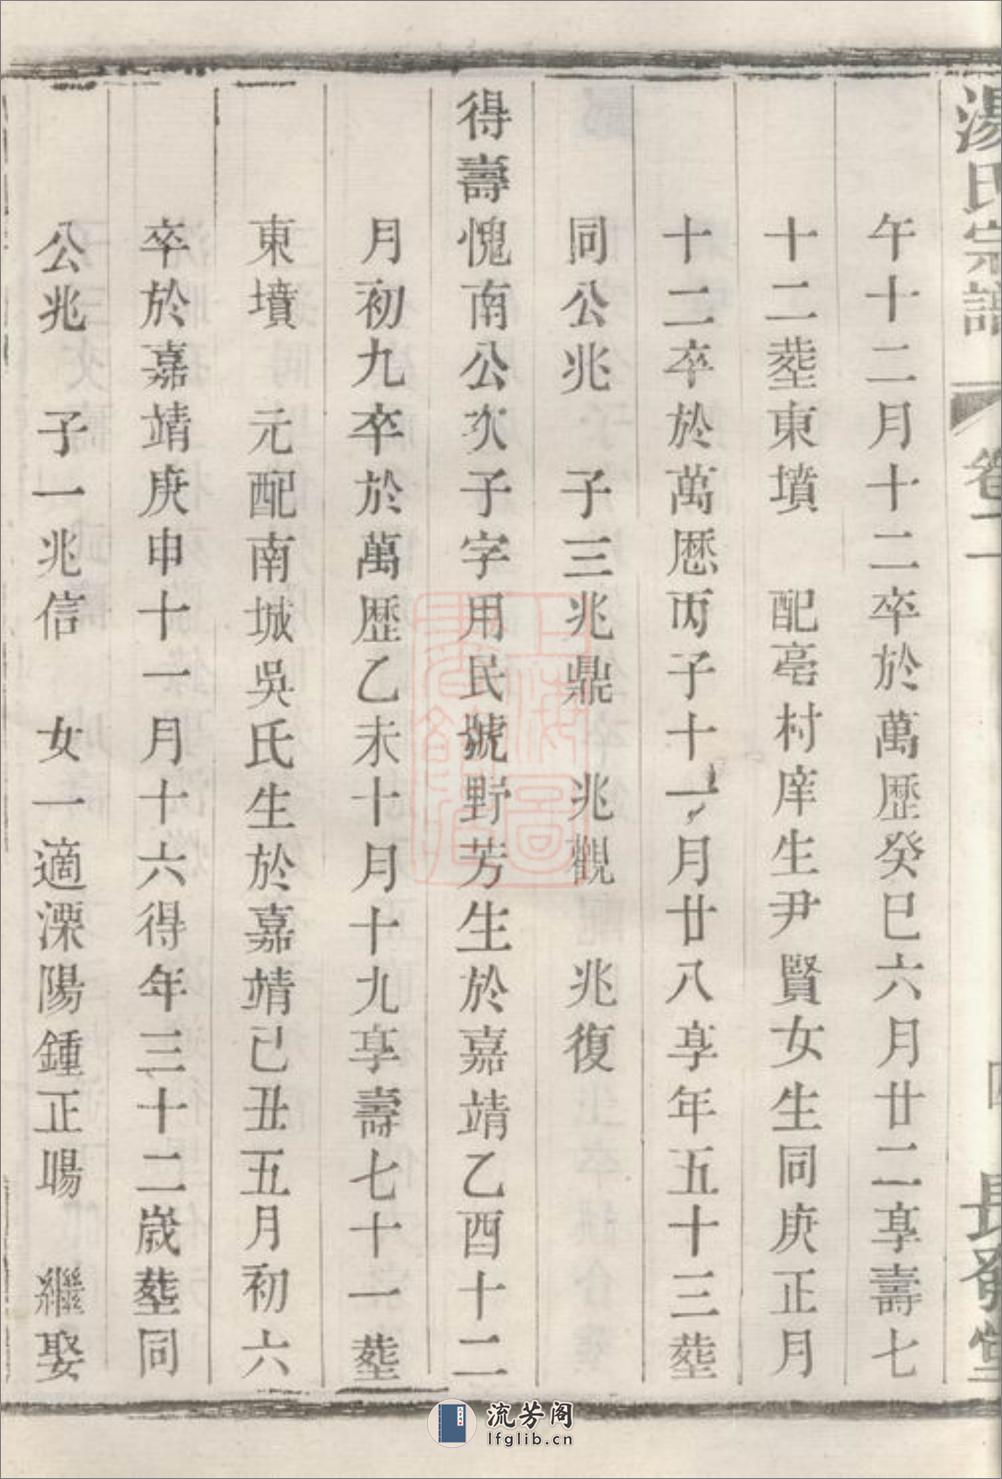 湯氏宗譜 卷二 長發堂
午十二月十二卒於萬歷癸巳六月廿二享壽七
十二塟東墳 配亳村庠生尹賢女生同庚正月
十二卒於萬厯丙子十一月廿八享年五十三塟
同公兆 子三兆鼎 兆觀 兆復
得壽愧南公次子字用民號野芳生於嘉靖乙酉十二
月初九卒於萬歷乙未十月十九享壽七十一塟
東墳 元配南城吳氏生於嘉靖己丑五月初六
卒於嘉靖庚申十一月十六得年三十二歲塟同
公兆 子一兆信 女一適溧陽鍾正暘 繼娶
流芳阁
lfglib.cn